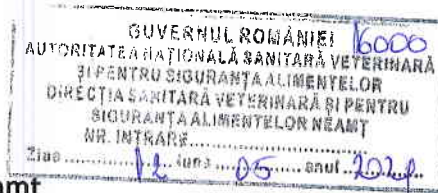 GUVERNUL ROMÂNIEI 16000
AUTORITATEA NAȚIONALĂ SANITARĂ VETERINARĂ
ȘI PENTRU SIGURANȚA ALIMENTELOR
DIRECȚIA SANITARĂ VETERINARĂ ȘI PENTRU
SIGURANȚA ALIMENTELOR NEAMȚ
NR. INTRARE..................
Ziua ........12... luna ....05..... anul ..202
amț